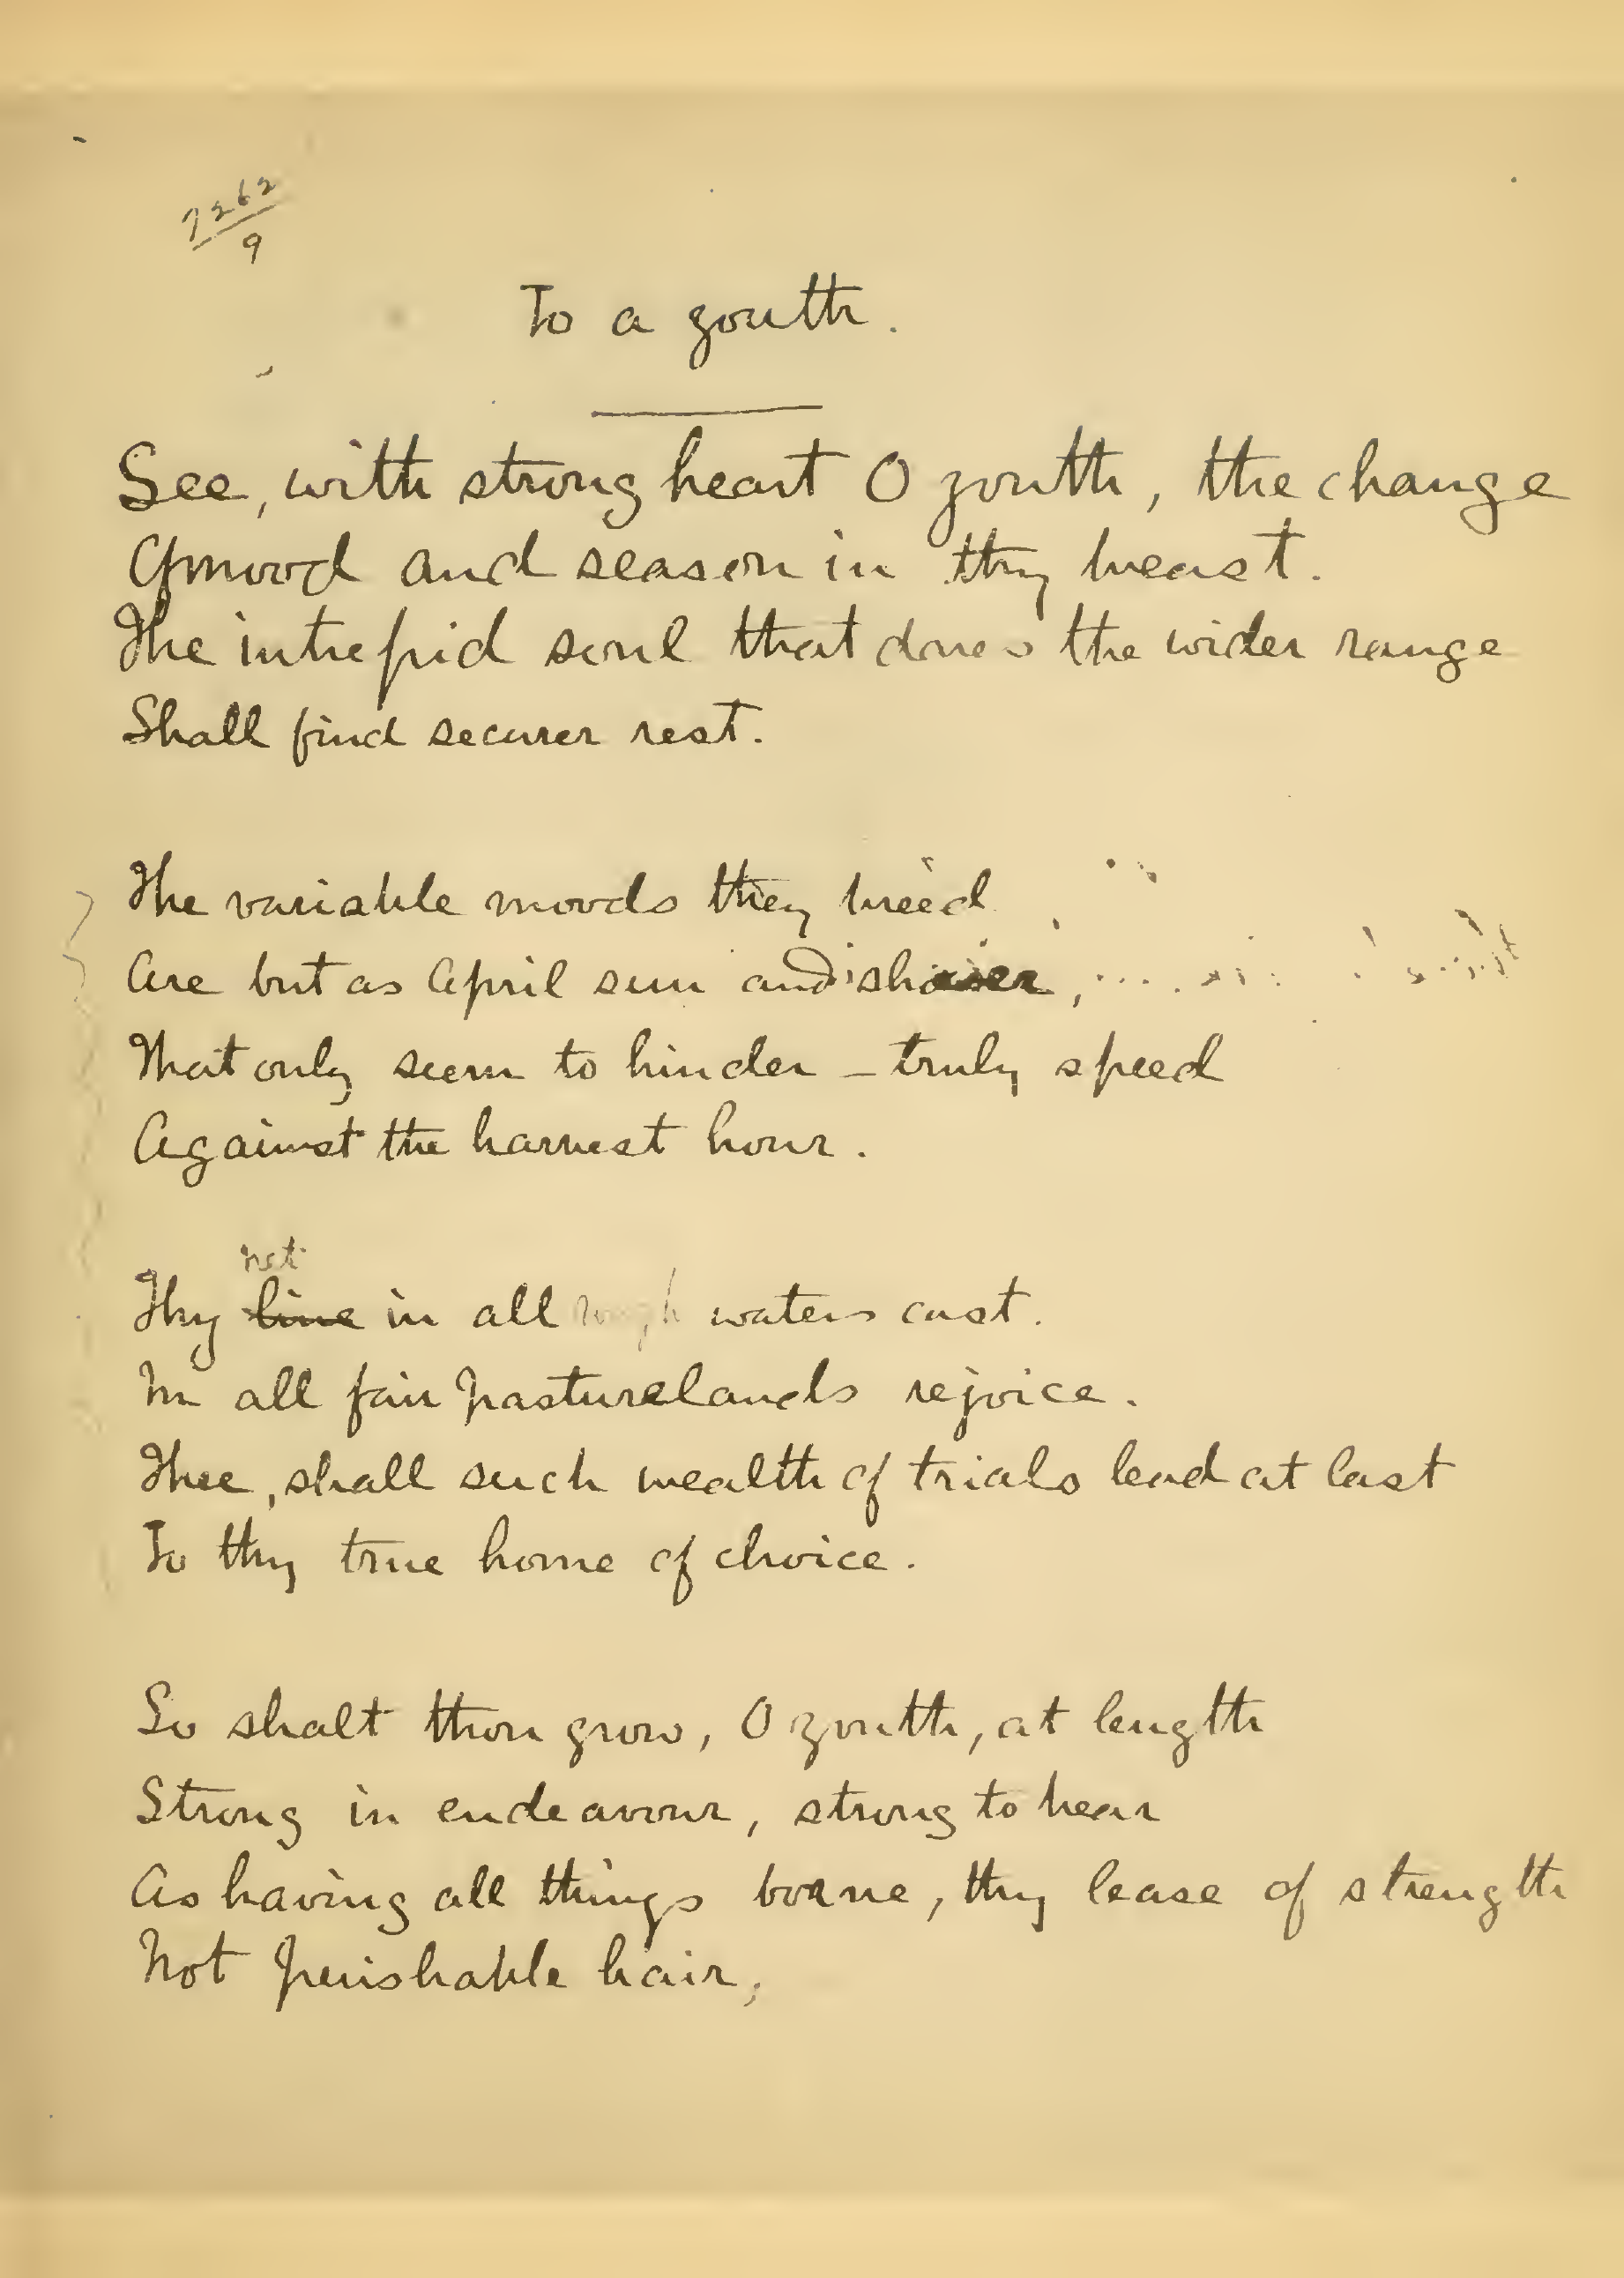 7262
9
To a youth.
See, with strong heart O youth, the change
Of mood and season in thy breast.
The intrepid soul that dares the wider range
Shall find securer rest.
The variable moods they breed
Are but as April sun and shower,
That only seem to hinder – truly speed
Against the harvest hour.
net
Thy line in all rough waters cast.
In all fair pasturelands rejoice.
Thee, shall such wealth of trials lead at last
To thy true home of choice.
So shalt thou grow, O youth, at length
Strong in endeavour, strong to bear
As having all things borne, thy lease of strength
Not perishable hair,